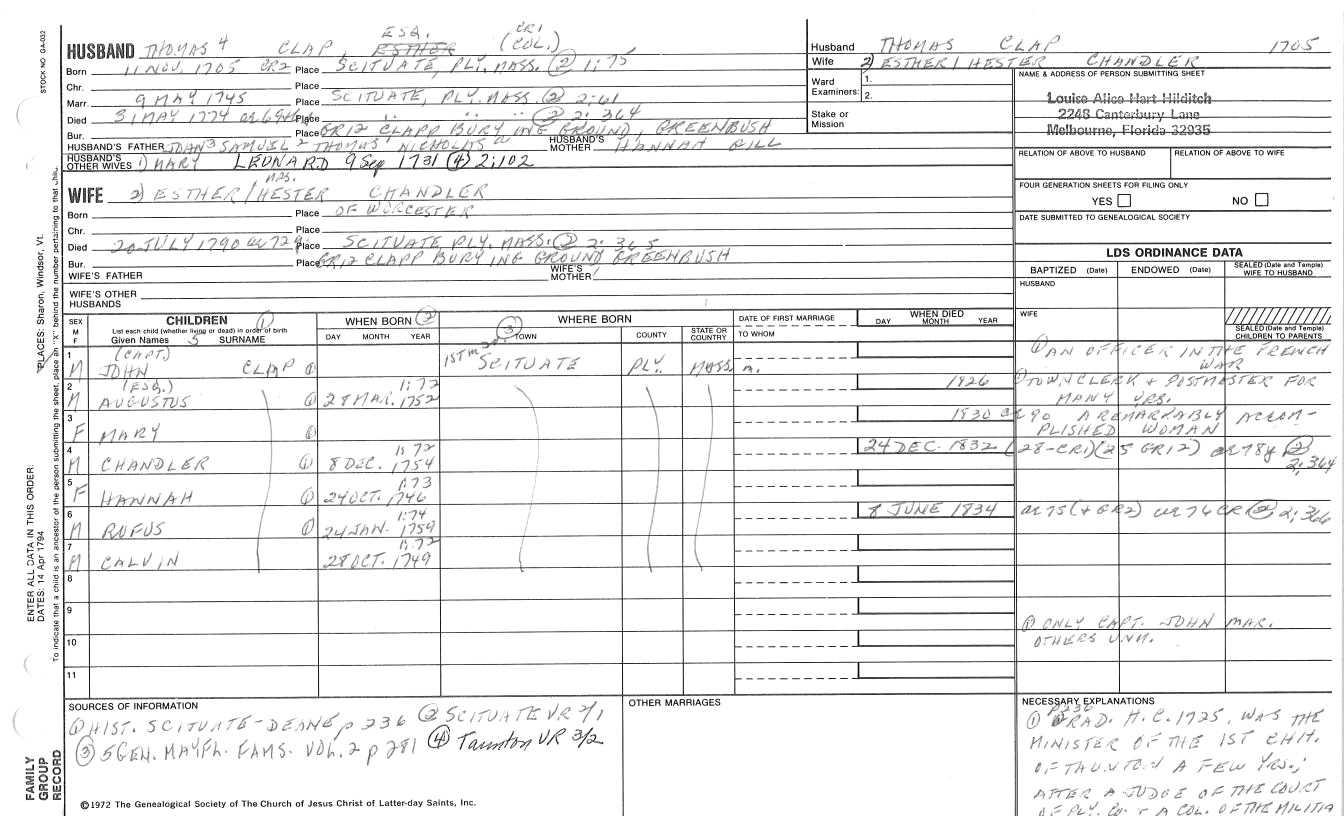 STOCK NO. GA-032
HUSBAND THOMAS 4 CLAP, ESQ. ESTHER (COL.) CR1
Born 11 NOV. 1705 CR2 Place SCITUATE, PLY. MASS. (2) 1:75
Chr. Place
Marr. 9 MAY 1745 Place SCITUATE, PLY. MASS. (2) 2:61
Died 31 MAY 1774 Place " " " (2) 2:364
Bur. Place GR12 CLAPP BURYING GROUND, GREENBUSH
HUSBAND'S FATHER JOHN 3 SAMUEL 2 THOMAS' NICHOLAS HUSBAND'S MOTHER HANNAH GILL
HUSBAND'S OTHER WIVES 1) MARY LEONARD 9 Sep 1731 (4) 2:102
WIFE 2) ESTHER / MRS. HESTER CHANDLER
Born Place OF WORCESTER
Chr. Place
Died 20 JULY 1790 ae 72y Place SCITUATE, PLY. MASS. (2) 2:365
Bur. Place GR12 CLAPP BURYING GROUND GREENBUSH
WIFE'S FATHER WIFE'S MOTHER
WIFE'S OTHER HUSBANDS
Husband THOMAS CLAP 1705
Wife 2) ESTHER / HESTER CHANDLER
Ward Examiners: 1.
2.
Stake or Mission
NAME & ADDRESS OF PERSON SUBMITTING SHEET
Louise Alice Hart Hilditch
2248 Canterbury Lane
Melbourne, Florida 32935
RELATION OF ABOVE TO HUSBAND RELATION OF ABOVE TO WIFE
FOUR GENERATION SHEETS FOR FILING ONLY
YES NO
DATE SUBMITTED TO GENEALOGICAL SOCIETY
LDS ORDINANCE DATA
BAPTIZED (Date) ENDOWED (Date) SEALED (Date and Temple) WIFE TO HUSBAND
HUSBAND
WIFE
SEALED (Date and Temple) CHILDREN TO PARENTS
SEX M F CHILDREN (1) WHEN BORN (2) WHERE BORN DATE OF FIRST MARRIAGE WHEN DIED
List each child (whether living or dead) in order of birth
Given Names 5 SURNAME DAY MONTH YEAR (3) TOWN COUNTY STATE OR COUNTRY TO WHOM DAY MONTH YEAR
1 M (CAPT.) JOHN CLAP (1) 1ST m SCITUATE PLY. MASS. (1) AN OFFICER IN THE FRENCH WAR
2 M (ESQ.) AUGUSTUS (1) 1:72 28 MAR. 1752 1826 (1) TOWN CLERK + POSTMASTER FOR MANY YRS.
3 F MARY (1) 1830 ae 90 A REMARKABLY ACCOMPLISHED WOMAN
4 M CHANDLER (1) 1:72 8 DEC. 1754 24 DEC. 1832 (28-CR1)(25 GR12) ae 78y (2) 2:364
5 F HANNAH (1) 1:73 24 OCT. 1746
6 M RUFUS (1) 1:74 24 JAN. 1759 8 JUNE 1834 ae 75 (+ GR2) ae 76 CR (2) 2:366
7 M CALVIN 1:72 28 OCT. 1749
8
9
10
11
(1) ONLY CAPT. JOHN MAR.
OTHERS UNM.
SOURCES OF INFORMATION
(1) HIST. SCITUATE - DEANE p 236 (2) SCITUATE VR 2/1
(3) 5 GEN. MAYFL. FAMS. VOL. 2 p 281 (4) Taunton VR 3/2
OTHER MARRIAGES
NECESSARY EXPLANATIONS
(1) p 236 GRAD. H.C. 1725, WAS THE
MINISTER OF THE 1ST CHH.
OF TAUNTON A FEW YRS.;
AFTER A JUDGE OF THE COURT
OF PLY. CO. + A COL. OF THE MILITIA
©1972 The Genealogical Society of The Church of Jesus Christ of Latter-day Saints, Inc.
FAMILY GROUP RECORD
ENTER ALL DATA IN THIS ORDER:
DATES: 14 Apr 1794
PLACES: Sharon, Windsor, Vt.
To indicate that a child is an ancestor of the person submitting the sheet, place an "X" behind the number pertaining to that